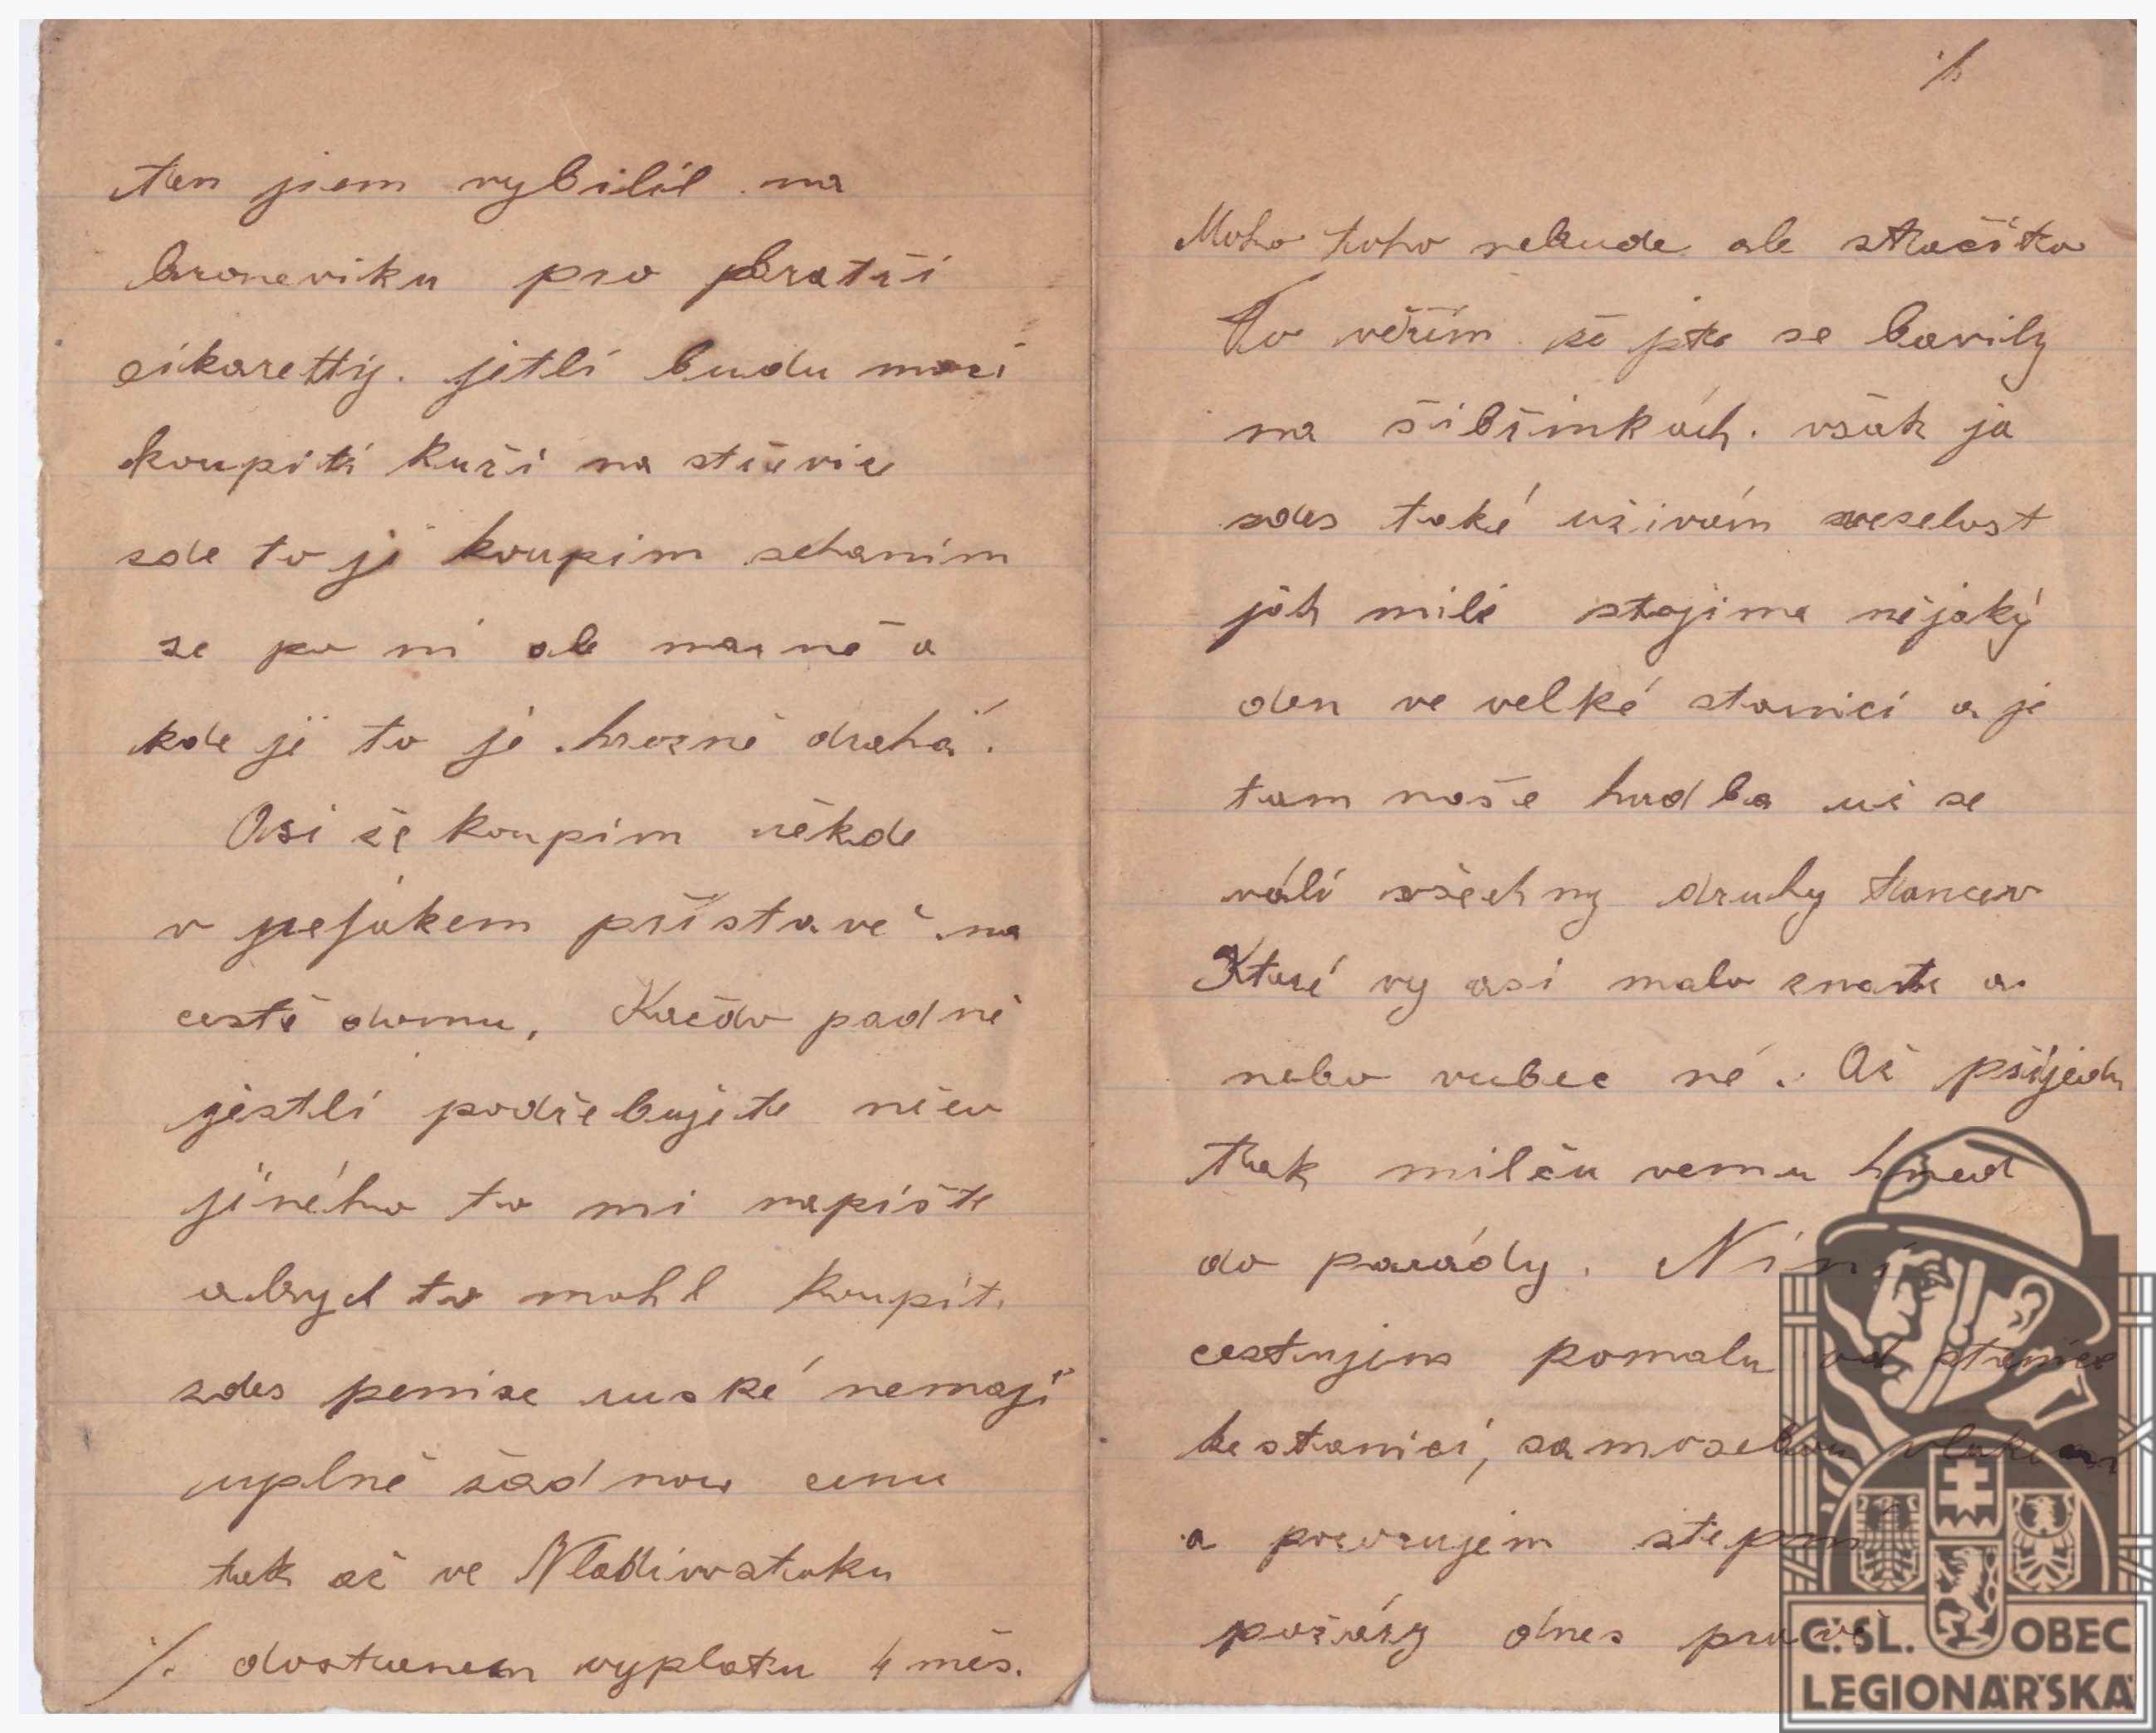 ten jsem vybilil na
broneviku pro bratři
cikaretty. jetli budu moci
koupiti kuži na střevice
zde to ji koupim schanim
se po ni ale marně a
kde ji to je hrozně drahá.
Asi že koupim někde
v nejakem přístavě na
cestě domu,
padně
jestli podřebujete něco
jiného to mi napište
abych to mohl koupit.
zdes penise ruské nemaji
uplně žadnou cenu
tak až ve Vladivostoku
/. dostanem vyplatu 4 měs.
/.
Moho toho nebude ale stačito
To věřím že jste se bavily
na šibřinkách. však ja
zdes také užívám veselost
jak mile stojime nějaký
den ve velké stanici a je
tam naše hudba už se
válí všechny druhy tancov
Které vy asi malo znate a
nebo vubec né. Až přijedu
tak milču vemu hned
do parády. Níni
cestujem pomalu od stanice
ke stanici, samosebou vlakem
a pozorujem stepní
požáry dnes pravě
Č.SL. OBEC
LEGIONÁŘSKÁ